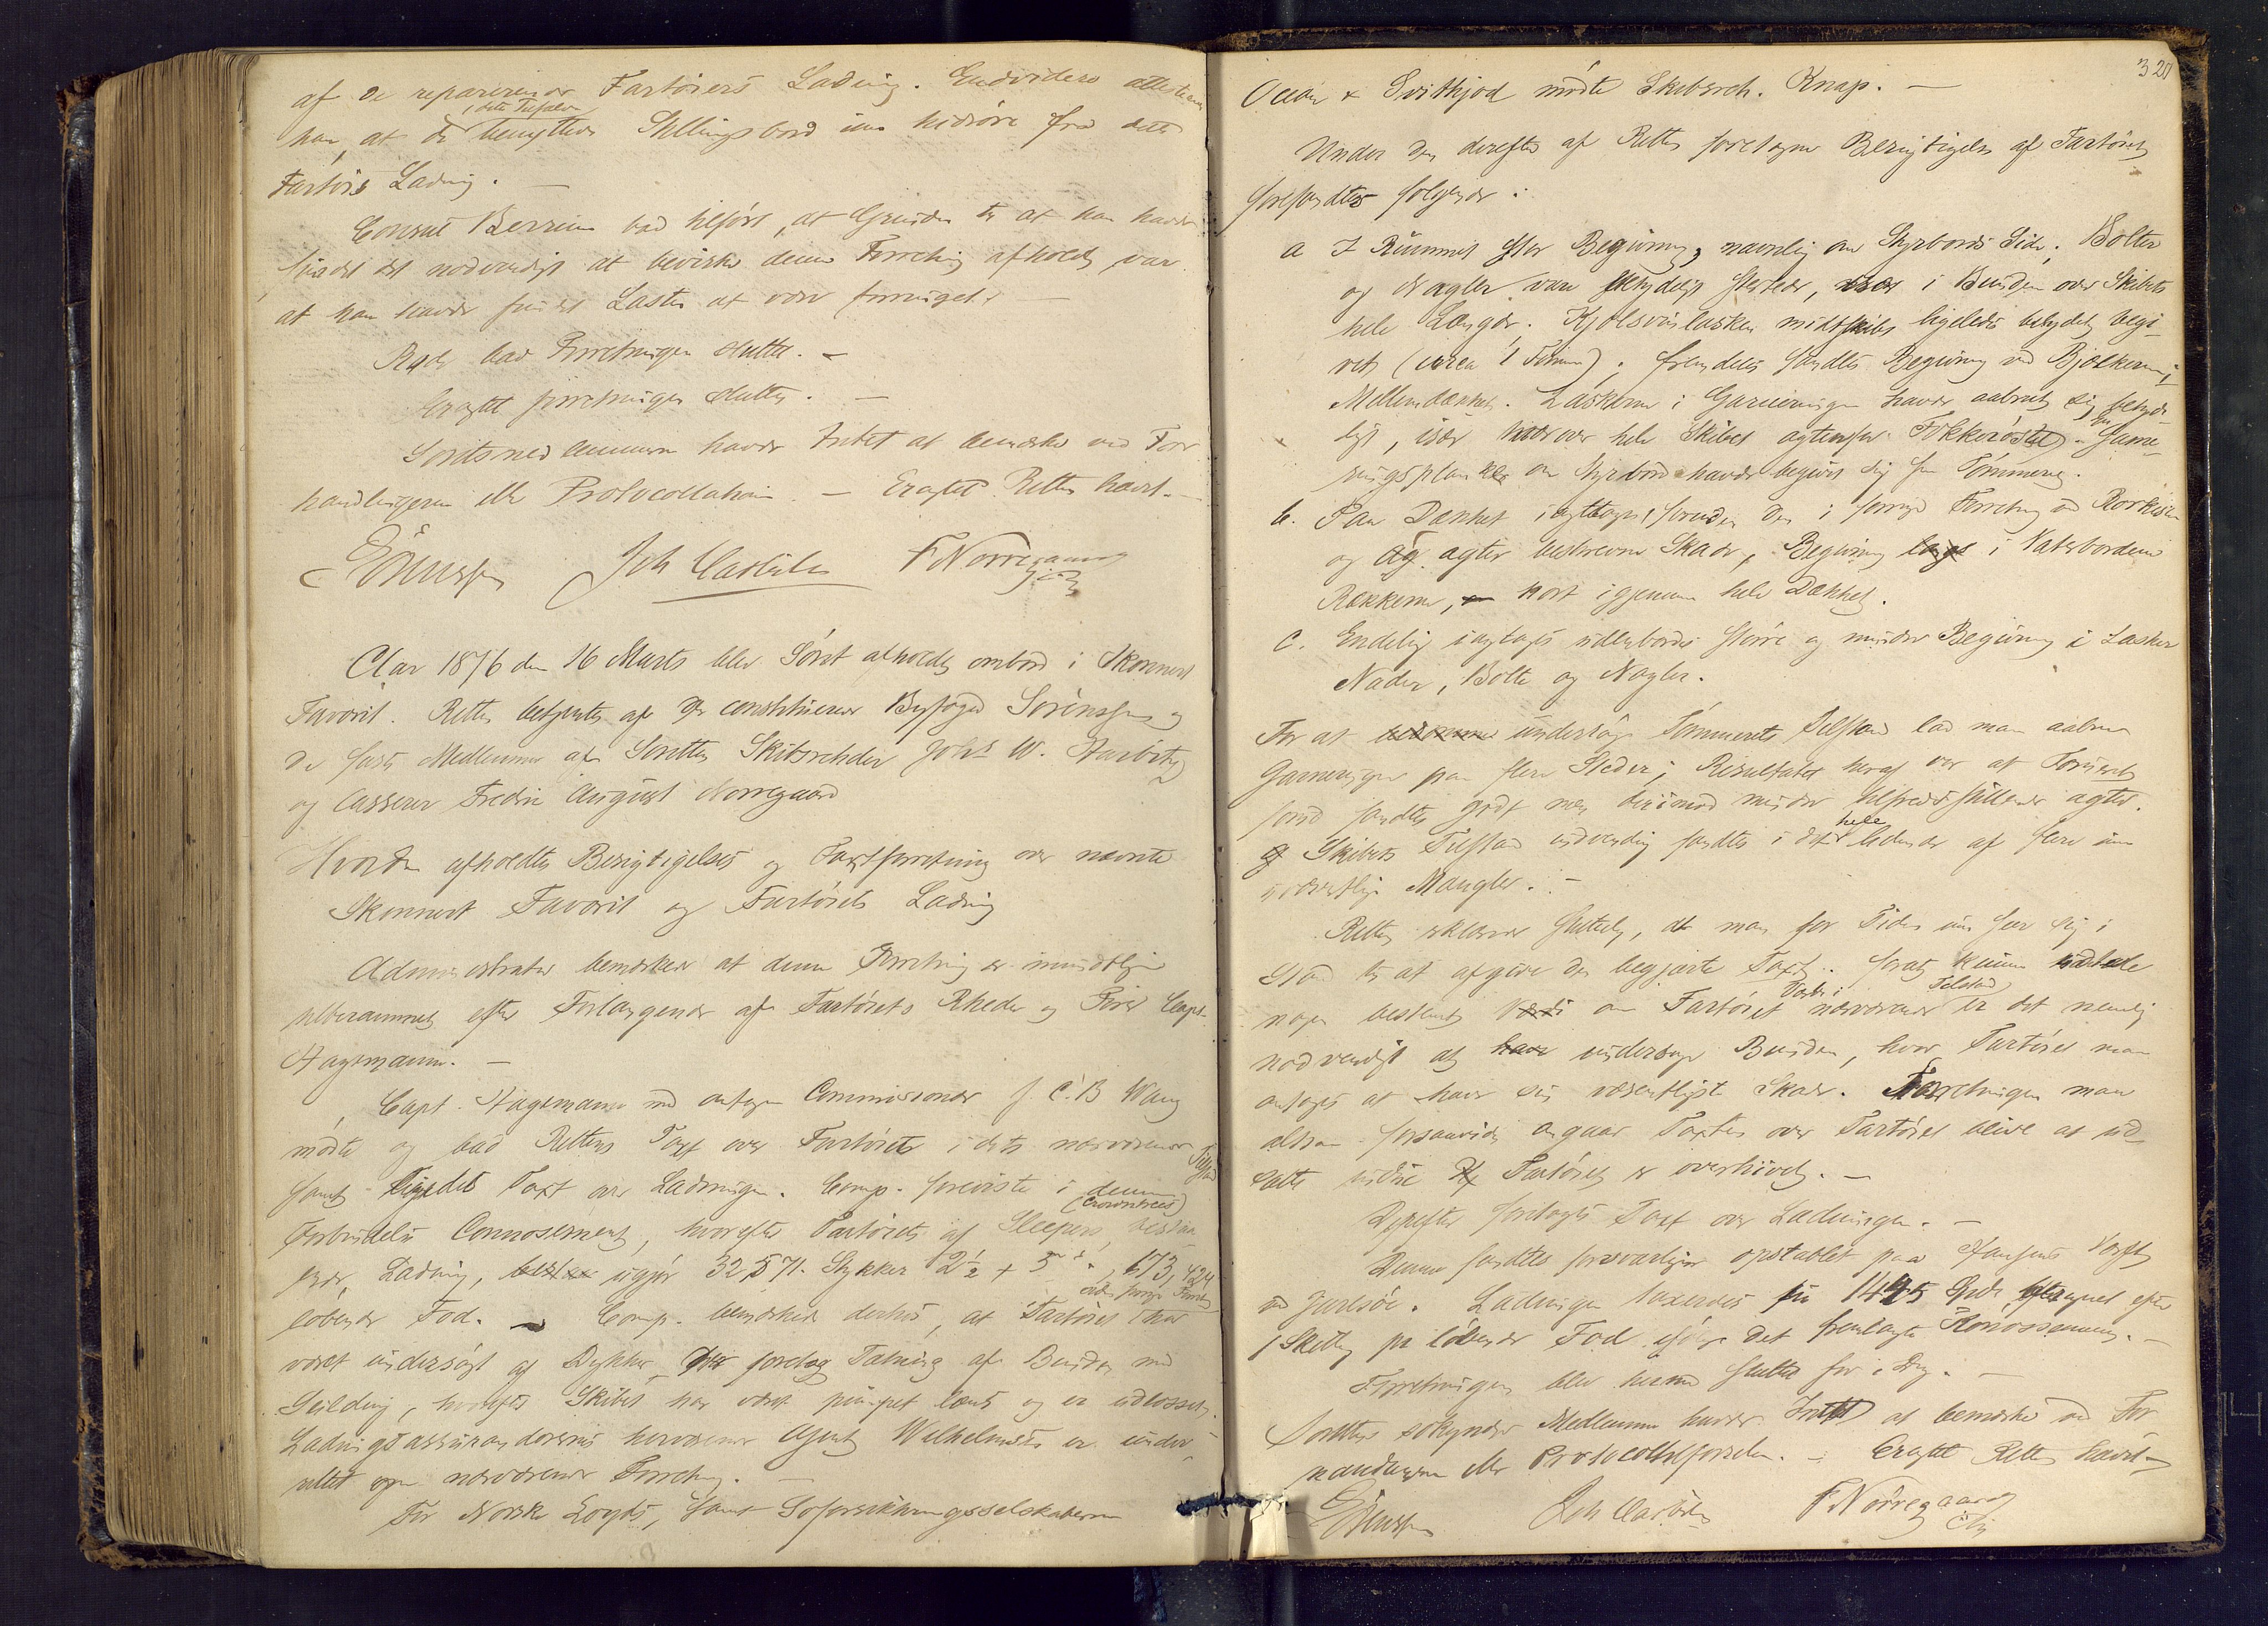 af de reparerende Fartøiers Ladning. Endvidere attesterede
i dette Tilfælde
han, at de benyttede Stillingsbord ikke hidrøre fra dette
Fartøis Ladning. —
Consul Berrum bad tilført, at Grunden til at han havde
fundet det nødvendigt at beviske denne Forretning afholdt, var
at han havde fundet Lasten at være forringet. —
Rqdr. bad Forretningen sluttet. —
Eragtet Forretningen sluttet. —
Søretsmedlemmerne havde Intet at bemærke ved For
handlingerne eller Protocollationen. — Eragtet Retten hævet. —
Sørenssen Joh Aarbøly F Nørregaard
Aar 1876 den 16 Marts blev Søret afholdt ombord i Skonnert
Favorit. Retten betjentes af den constituerede Byfoged Sørenssen og
de faste Medlemmer af Søretten Skibsrheder Johs W. Aarbøly
og Casserer Fredrik August Nørregaard
Hvorda afholdtes Besigtigelses og Taxtforretning over nævnte
Skonnert Favorit og Fartøiets Ladning
Administrator bemærkede at denne Forretning er mundtligen
berammet efter Forlangende af Fartøiets Rheder og Fører Capt.
Hagemann. —
Capt. Hagemann med antagen Commissionær J. C. B. Wang
mødte og bad Rettens Taxt over Fartøiet i dets nærværende Tilstand
samt ligeledes Taxt over Ladningen. Comp. foreviste i denne
(Crowntrees)
Forbindelse Connosement, hvorefter Fartøiets af Sleepers, bestaa
ende, Ladning, udgjør 32,571 Stykker 2½ + 5 , 673,424
siden forrige Forretn
løbende Fod. — Comp. bemærkede derhos, at Fartøiet har
været undersøgt af Dykker, der foretog Tætning af Bunden med
Seildug, hvorefter Skibet har været pumpet læns og er udlosset.
Ladningsassurandørernes herværende Agent Wilhelmsen er under
rettet om nærværende Forretning. —
For Norske Loyds, samt Søforsikkringsselskaberne
321
Ocean & Svithjod mødte Skibsrh. Knap. —
Under den derefter af Retten foretagne Besigtigelse af Fartøiet
forefandtes følgende:
a I Rummet stor Begivning, navnlig om Styrbords Side. Bolter
og Nagler vare betydeligt , især i Bunden over Skibets
hele Længde. Kjølsvinlasken midtskibs ligeledes betydelig begi-
vet (circa 1 Tomme); fremdeles fandtes Begivning ved Bjælkerne i
Mellemdækket. Laskerne i Garneringen havde aabnet sig betyde
ligt, især over hele Skibet agtenfor Fokkerøstet. En Garne-
ringsplanke om Styrbord havde begivet sig fra Tømmeret.
b. Paa Dækket iagttoges, foruden den i forrige Forretning ved Rorkisten
og agter beskrevne Skade, Begivning i Vatebordene
Rækkerne, kort igjennem hele Dækket.
c. Endelig iagtoges udenbords større og mindre Begivning i Lasker
Nader, Bolte og Nagler.
For at undersøge Tømmerets Tilstand lod man aabne
Garneringen paa flere Steder; Resultatet heraf var at Tømmeret
forud fandtes godt men derimod mindre tilfredsstillende agter.
hele
Skibets Tilstand udvendig fandtes i det lidende af flere ikke
uvæsentlige Mangler. —
Retten erklærede sluttelig, at man for Tiden ikke seer sig i
Stand til at afgive den begjærte Taxt. For at kunne udtale
Værdi i Tilstand
nogen bestemt om Fartøiet nærværende er det nemlig
nødvendigt at undersøge Bunden, hvor Fartøiet man
antages at have sin væsentligste Skade. Forretningen maa
altsaa forsaavidt angaar Taxten over Fartøiet blive at ud-
sætte indtil Fartøiet er overhivet. —
Derefter foretoges Taxt over Ladningen. —
Denne fandtes forsvarligen opstablet paa Hansens Værft
ved Jarlsø. Ladningen taxeredes til 1445 Spdr beregnet efter
1 Skilling pr løbende Fod ifølge det fremlagte Konossement. —
Forretningen blev hermed sluttet for i Dag. —
Sørettens søkyndige Medlemmer havde Intet at bemærke ved For
handlingerne eller Protocoltilførselen. — Eragtet Retten hævet. —
Sørenssen Joh Aarbøly F Nørregaard